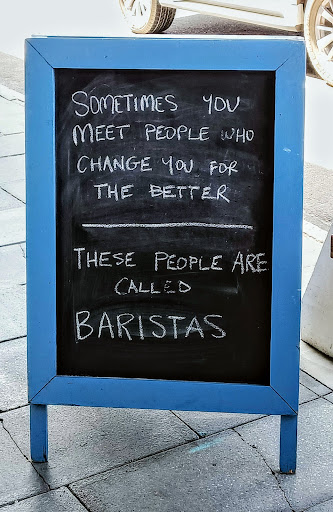 SOMETIMES YOU
MEET PEOPLE WHO
CHANGE YOU FOR
THE BETTER
THESE PEOPLE ARE
CALLED
BARISTAS